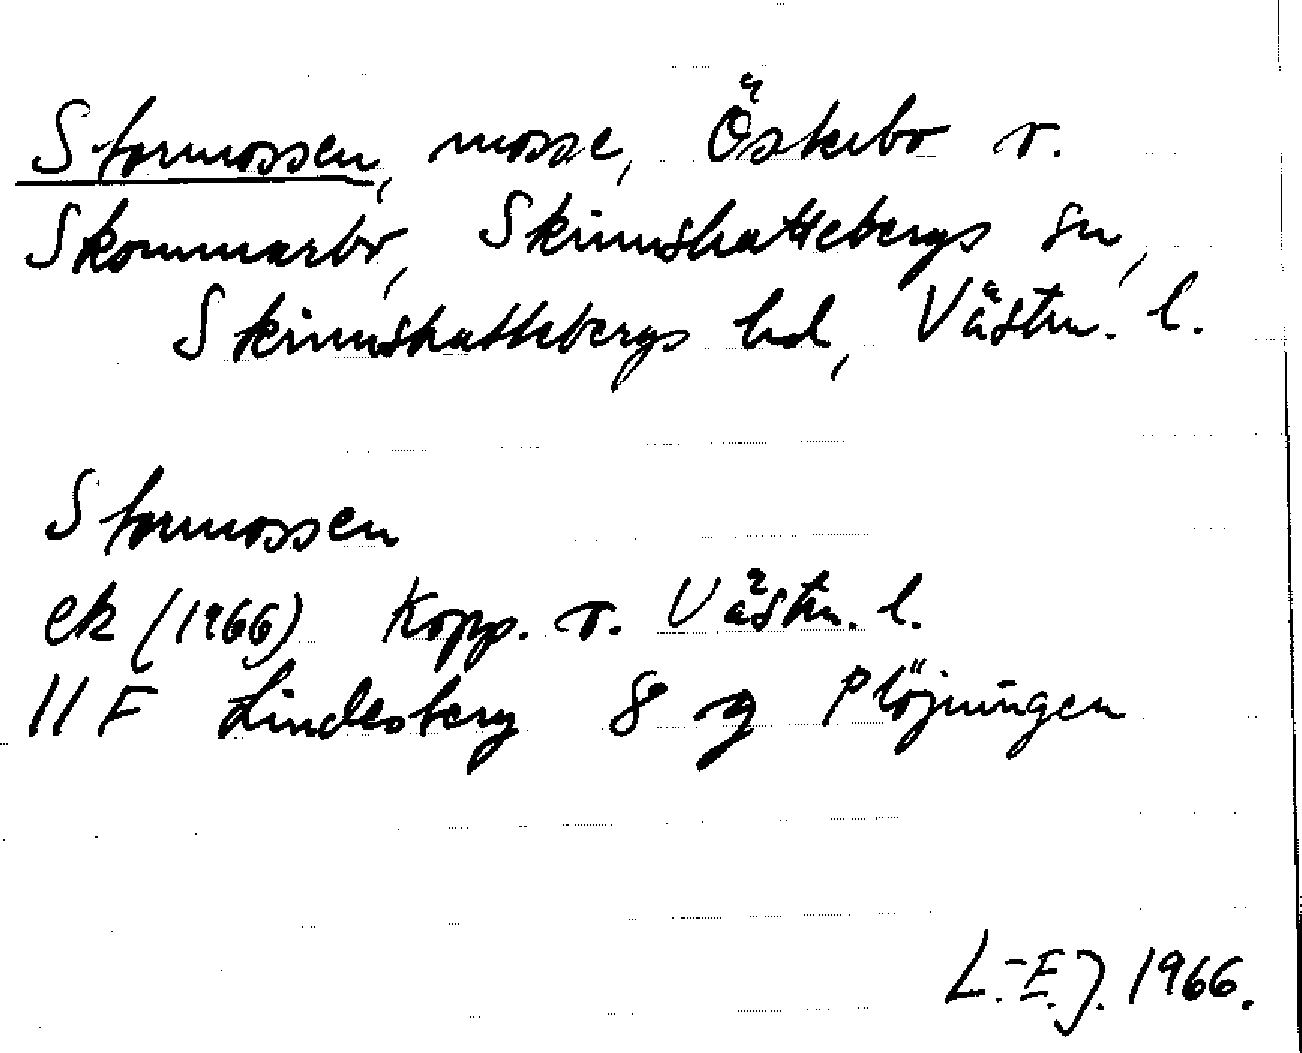 Stormossen, mosse, Öskebo o.
Skommarbo, Skinnskattebergs sn,
Skinnskattebergs hd, Västm. l.
Stormossen
ek (1966) Kopp. o. Västm. l.
11 F Lindesberg 8 g Plöjningen
L.-E.J. 1966.